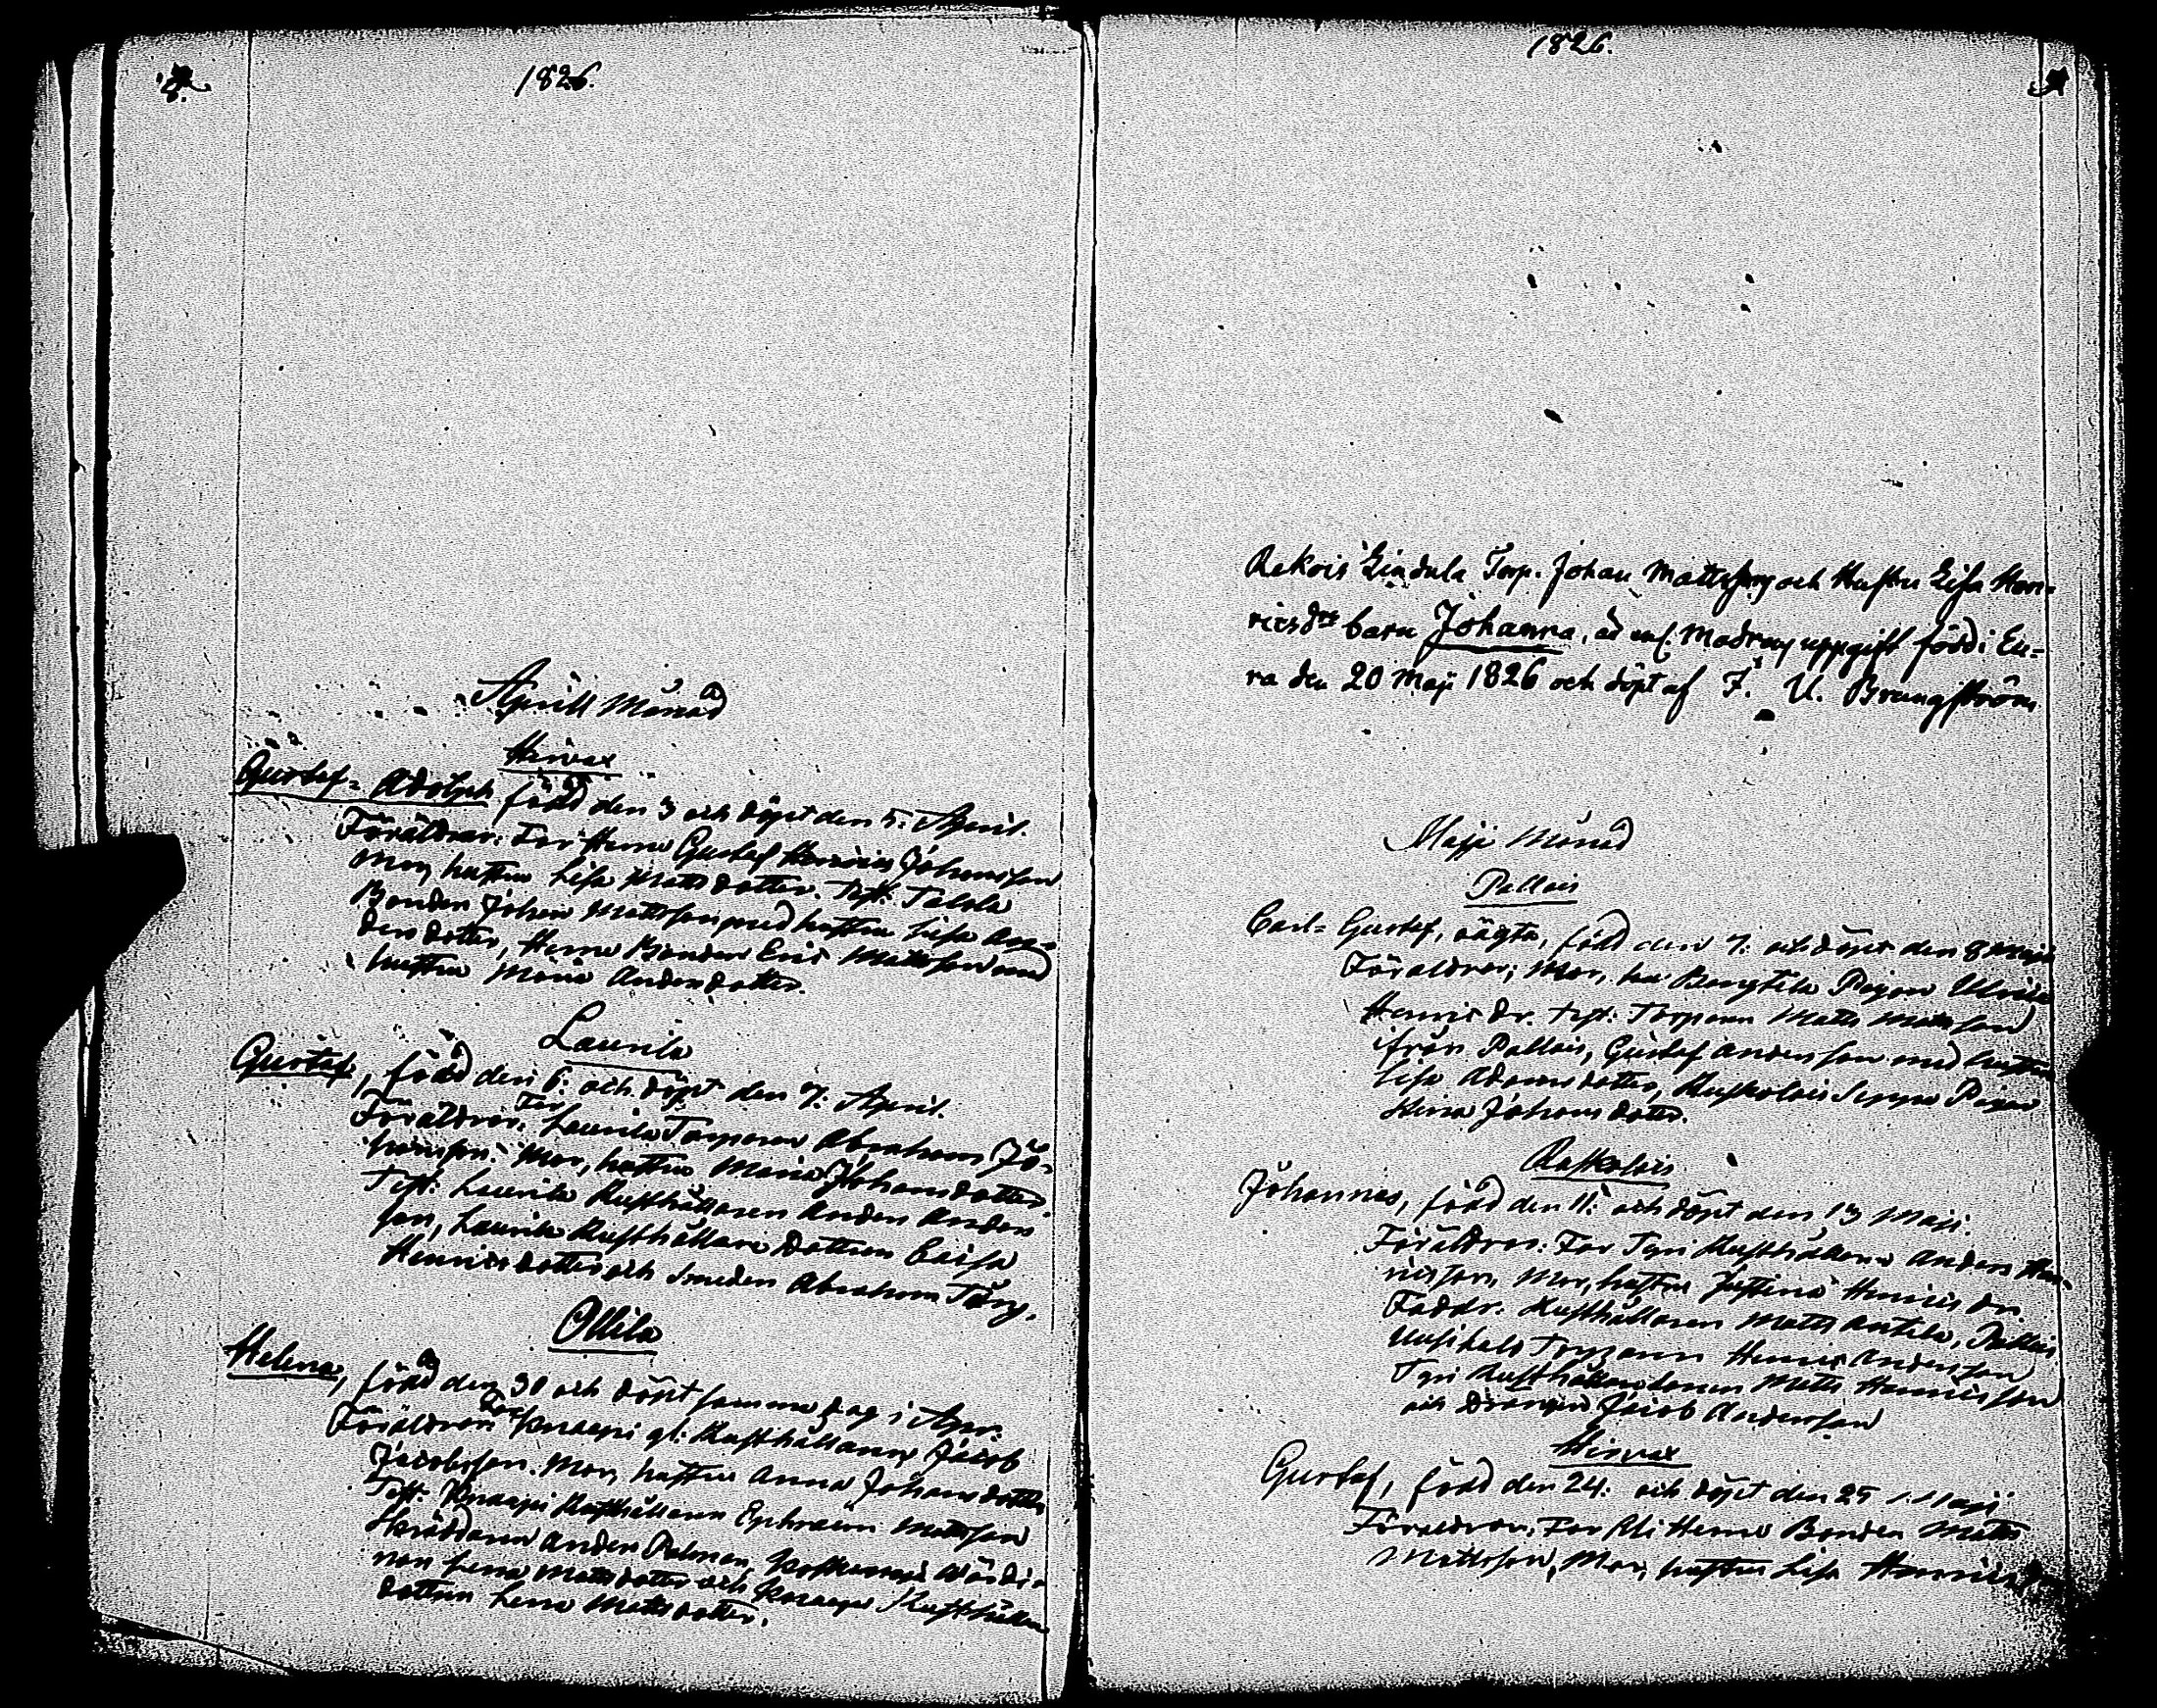 1826.
Aprill Månad
Hirvax
Gustaf=Adolph född den 3 och döpt den 5. April.
Föräldrar: Far Gustaf Johansson
Mor, hustru Lisa Mattsdotter. Test:
Bonden Johan Mattsson med hustru Lisa An=
dersdotter, Bonden Eric Mattsson med
hustru Maria Andersdotter.
Laurila
Gustaf, född den 6: och döpt den 7: April.
Föräldrar, Far Laurila Torparen Abraham Jo=
hansson. Mor, hustru Maria Johansdotter.
Test: Laurila Rusthållaren Anders Anders
son, Laurila Rusthållare Dottren Caisa
Henricsdotter och Smeden Abraham
Ollila
Helena, född den 30 och döpt samma dag i Apr:
Föräldrar: Far Knaapi gl: Rusthållaren Jacob
Jacobsson. Mor, hustru Anna Johansdotter
Test: Knaapi Rusthållaren Ephraim Mattsson
Skräddaren Anders Palman,
Lena Mattsdotter och Knaapi Rusthållare
dottren Lena Mattsdotter.
1826.
Rekois Torp. Johan Mattsson och Hustru Lisa Hen=
ricsdtr barn Johanna, Modrens uppgift född i Eu=
ra den 20 Maji 1826 och döpt af F. U. Brangström
Maji Månad
Pallais
Carl=Gustaf, oägta, född den 7: och döpt den 8 Maji
Föräldrar; Mor, Pigan Ulrica
Henricsdr. test: Torparen Matts Mattsson
ifrån Pallais, Gustaf Andersson med hustru
Lisa Adamsdotter, Pigan
Stina Johansdotter.
Raskolais
Johannes, född den 11: och döpt den 13 Maji.
Föräldrar: Far Rusthållaren Anders Hen=
ricsson, Mor, hustru Justina Henricsdr.
Faddr: Rusthållaren Matts Anttila, Pallais
Torparen Henric Andersson
Rusthållaresonen Matts Henricsson
och Drängen Jacob Andersson
Hirvax
Gustaf, född den 24: och döpt den 25 Maji
Föräldrar, Far Bonden Matts
Mattsson, Mor, hustru Lisa